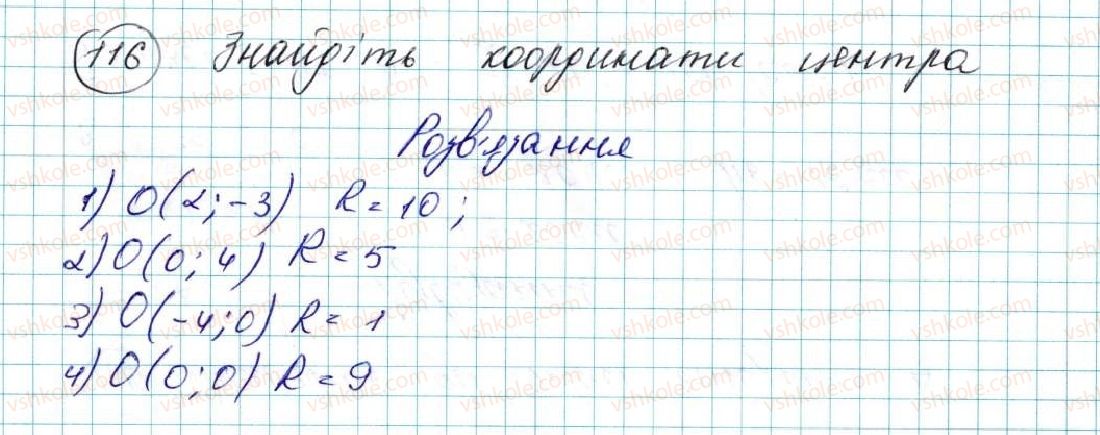 116 Знайдіть координати центра
Розв'язання
1) O(2;-3) R=10;
2) O(0;4) R=5
3) O(-4;0) R=1
4) O(0;0) R=9